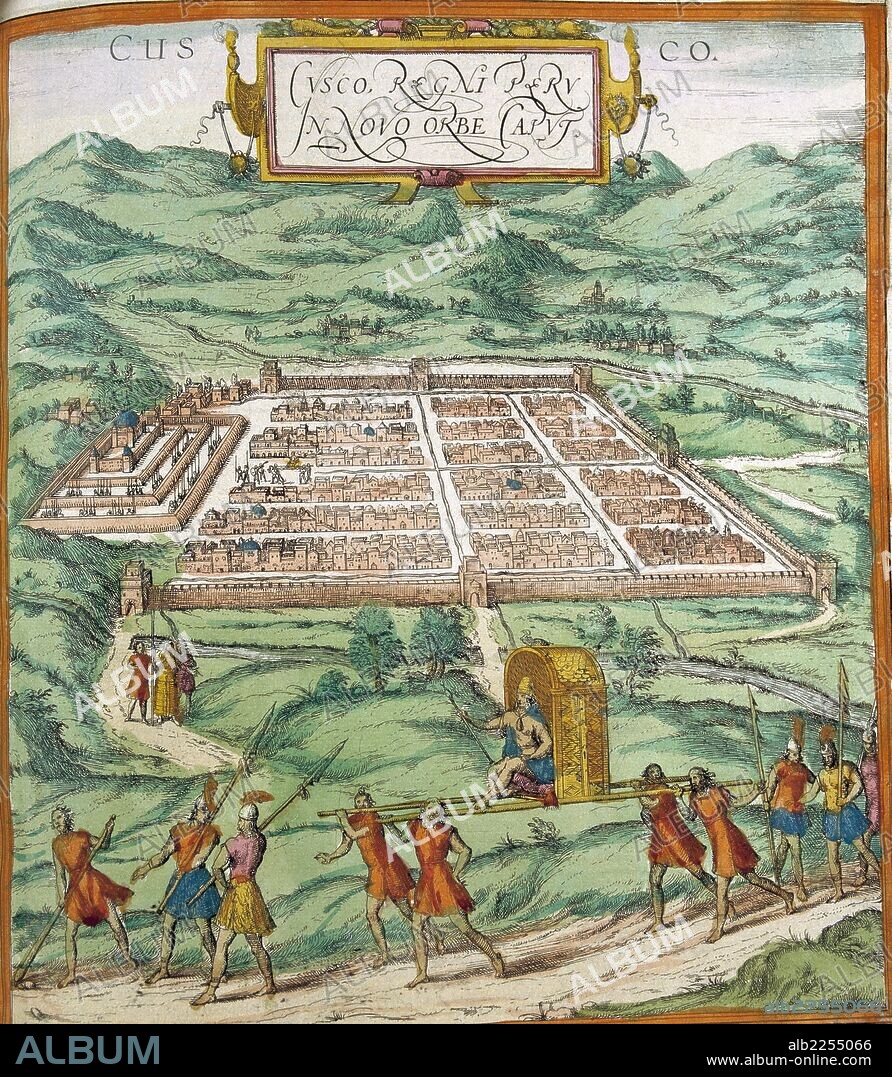 CUS CO.
CVSCO, REGNI PERV
IN NOVO ORBE CAPVT.
ALBUM
ALBUM
alb2255066
www.album-online.com